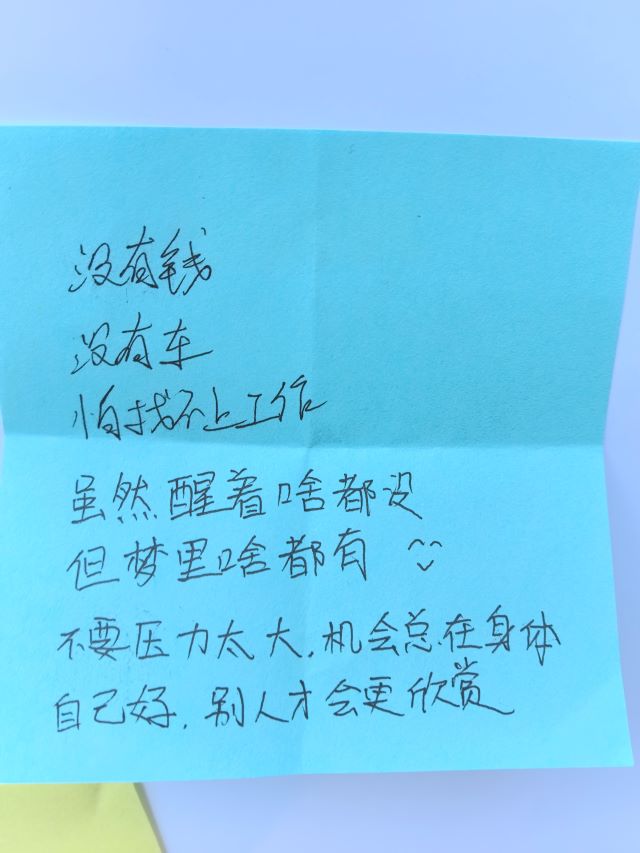 没有钱
没有车
怕找不上工作
虽然醒着啥都没
但梦里啥都有
不要压力太大，机会总在身体
自己好，别人才会更欣赏